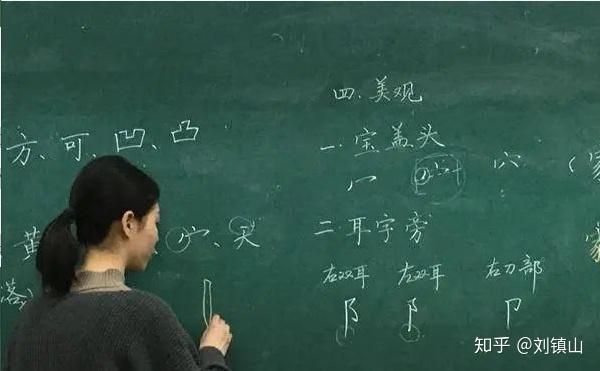 四.美观
方、可、凹、凸
一.宝盖头
冖 宀 穴
二.耳字旁
黄
宀、天
左双耳 左双耳 右刀部
阝 阝 卩
落
知乎 @刘镇山